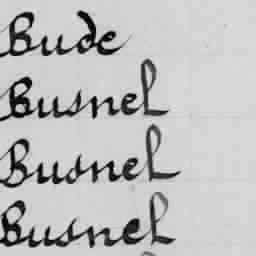 Bude
Busnel
Busnel
Busnel